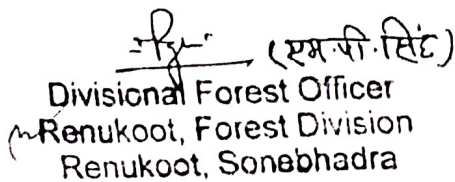 (एम.पी.सिंह)
Divisional Forest Officer
Renukoot, Forest Division
Renukoot, Sonebhadra